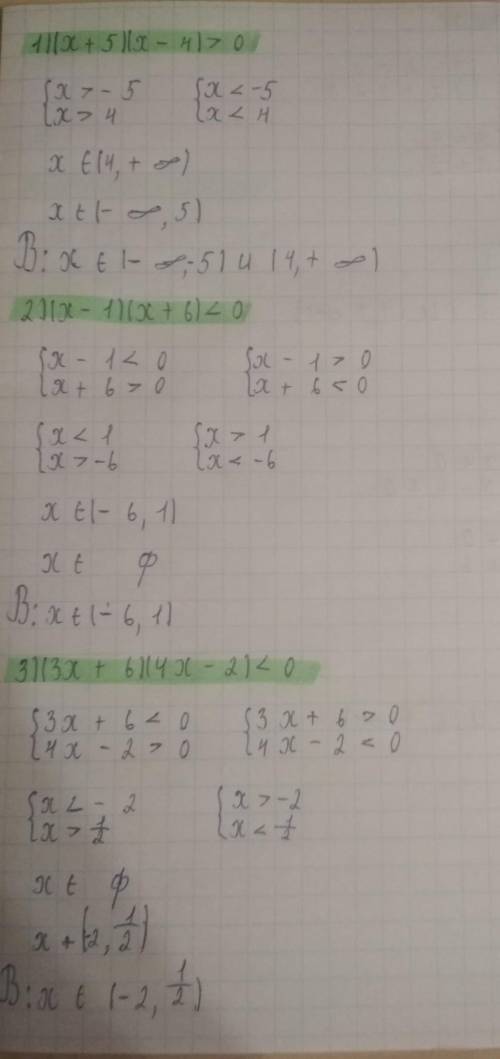 1)(x + 5)(x - 4) > 0
{x > - 5 {x < -5
{x > 4 {x < 4
x ∈ (4, + ∞)
x ∈ (- ∞, 5)
В: x ∈ (- ∞, -5) ∪ (4, + ∞)
2)(x - 1)(x + 6) < 0
{x - 1 < 0 {x - 1 > 0
{x + 6 > 0 {x + 6 < 0
{x < 1 {x > 1
{x > -6 {x < -6
x ∈ (- 6, 1)
x ∈ ф
В: x ∈ (- 6, 1)
3)(3x + 6)(4x - 2) < 0
{3x + 6 < 0 {3x + 6 > 0
{4x - 2 > 0 {4x - 2 < 0
{x < - 2 {x > -2
{x > 1/2 {x < 1/2
x ∈ ф
x + (-2, 1/2)
В: x ∈ (-2, 1/2)